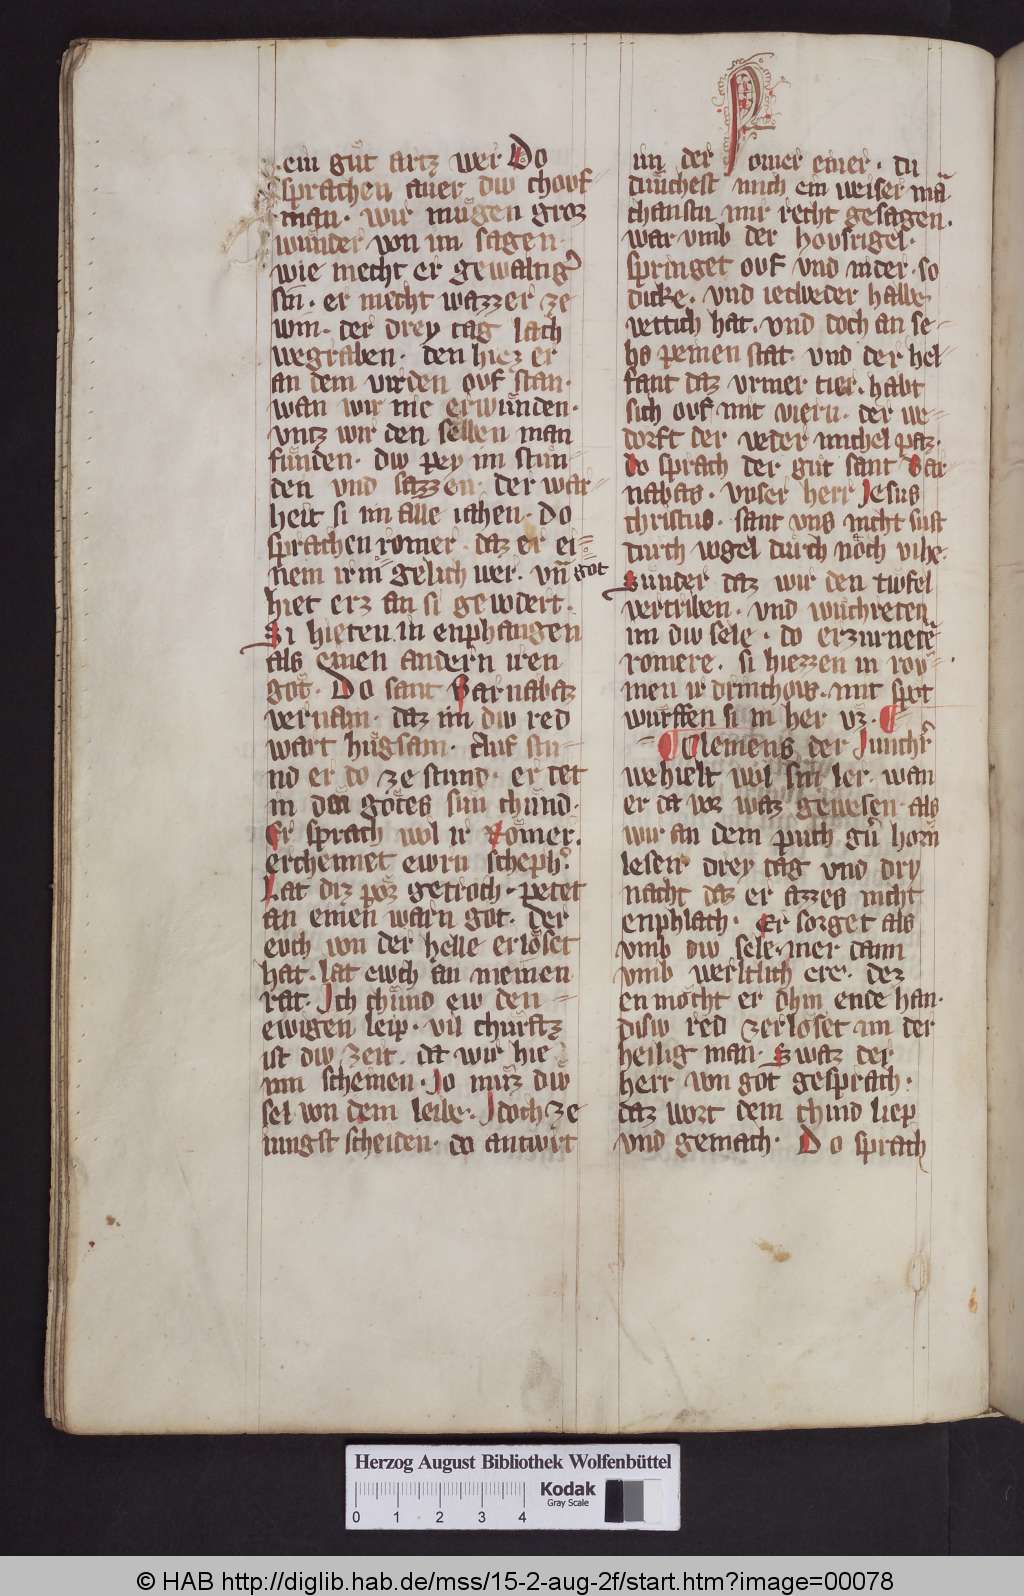 ein guͦt artz wer Do
sprachen auer diw chouf
man · wir muͤgen groz
wunder von im sagen ·
wie mecht er gewaltig̉
sin · er mecht wazzer ze
win · der drey tag lach
wegraben · den hiez er
an dem virden ouf stan ·
wan wir nie erwunden ·
vntz wir den selben man
funden · diw pey im stun⸗
den vnd sazzen · der war⸗
heit si im alle iahen · Do
sprachen romer · daz er ei⸗
nem irm gelich wer · vn̄ got
hiet erz an si gewdert ·
Si hieten in enphangen
als einen andern iren
got · Do sant Barnabaz
vernam · daz im diw red
wart hugsam · Auf stu⸗
nd er do ze stund · er tet
in den gotes sun chund ·
Er sprach wol ir Romer ·
erchennet ewrn scheph̉ ·
Lat diz por getroch · petet
an einen warn got · der
euch von der helle erloͤset
hat · lat ewch an meinen
rat · Ich chund ew den ⸗
ewigen leip · vil churtz
ist diw zeit · da wir hie
inn scheinen · Jo muͤz diw
sel von dem leibe · Idoch ze
iungst scheiden · do antwrt
im der Romer einer · du
dunchest mich ein weiser mā
chanstu mir recht gesagen ·
war vmb der housrigel ·
springet ouf vnd nider · so
dicke · vnd ietweder halbe
vettich hat · vnd doch an se⸗
hs peinen stat · vnd der hel⸗
fant daz vrmer tier · habt
sich ouf mit viern · der we⸗
dorft der veder michel paz ·
Do sprach der gut sant Bar
nabas · vnser herr Jesus
christus · sant vns nicht sust
durch vogel durch noch vihe ·
Sunder daz wir den tiwfel
vertriben · vnd wuchreten
im diw sele · do erzurnetē
romere · si hiezzen in rou⸗
men ir drinchous · mit spot
wurffen si in her vz ·
Clemens der Junchr̉
wehielt wol sin ler · wan
er da vor waz gewesen · als
wir an dem puch gn̄ horn
lesen · drey tag vnd dry
nacht daz er azzes nicht
enphlach · Er sorget als
vmb diw sele · mer dann
vmb werltlich ere · dez
en mocht er dhin ende han ·
disiw red zerloset im der
heilig man · Swaz der
herr von got gesprach ·
daz wort dem chind liep
vnd gemach · Do sprach
Herzog August Bibliothek Wolfenbüttel
Kodak
Gray Scale
0 1 2 3 4
© HAB http://diglib.hab.de/mss/15-2-aug-2f/start.htm?image=00078